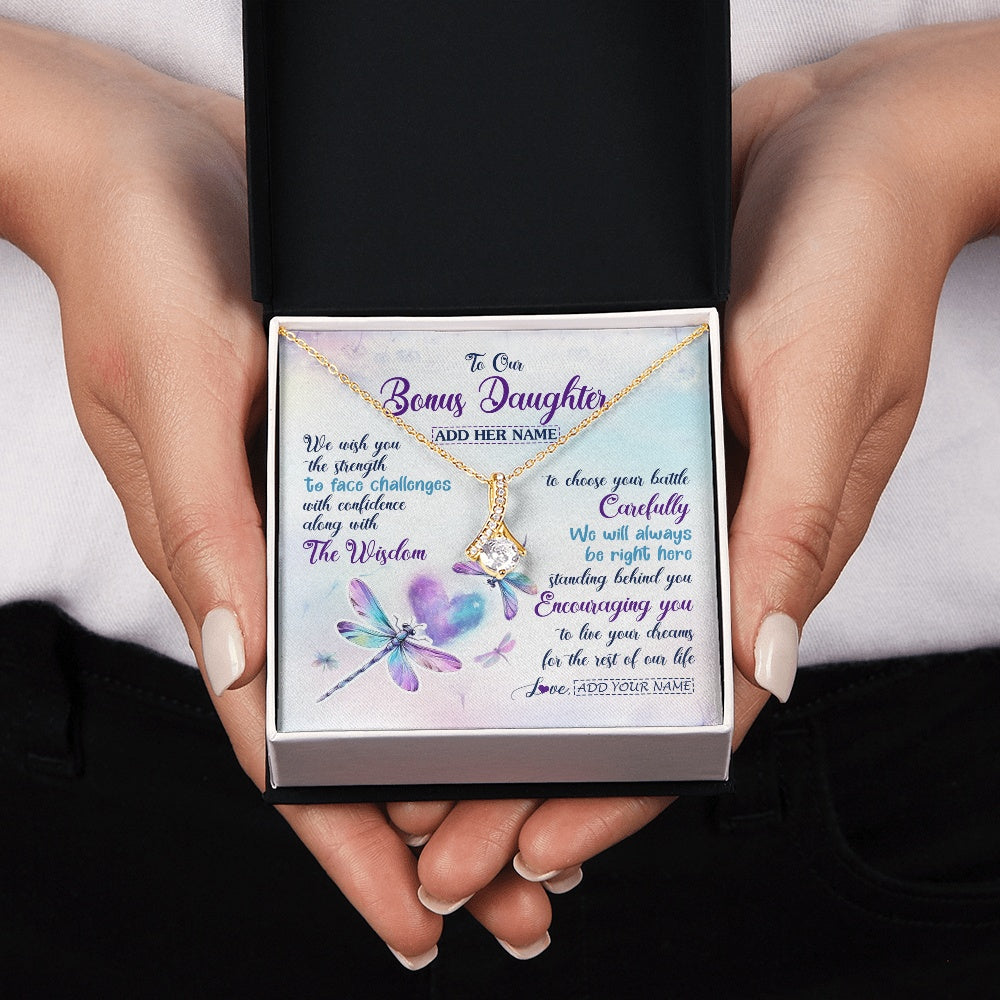 To Our
Bonus Daughter
ADD HER NAME
We wish you
the strength
to face challenges
with confidence
along with
The Wisdom
to choose your battle
Carefully
We will always
be right here
standing behind you
Encouraging you
to live your dreams
for the rest of our life
Love, ADD YOUR NAME